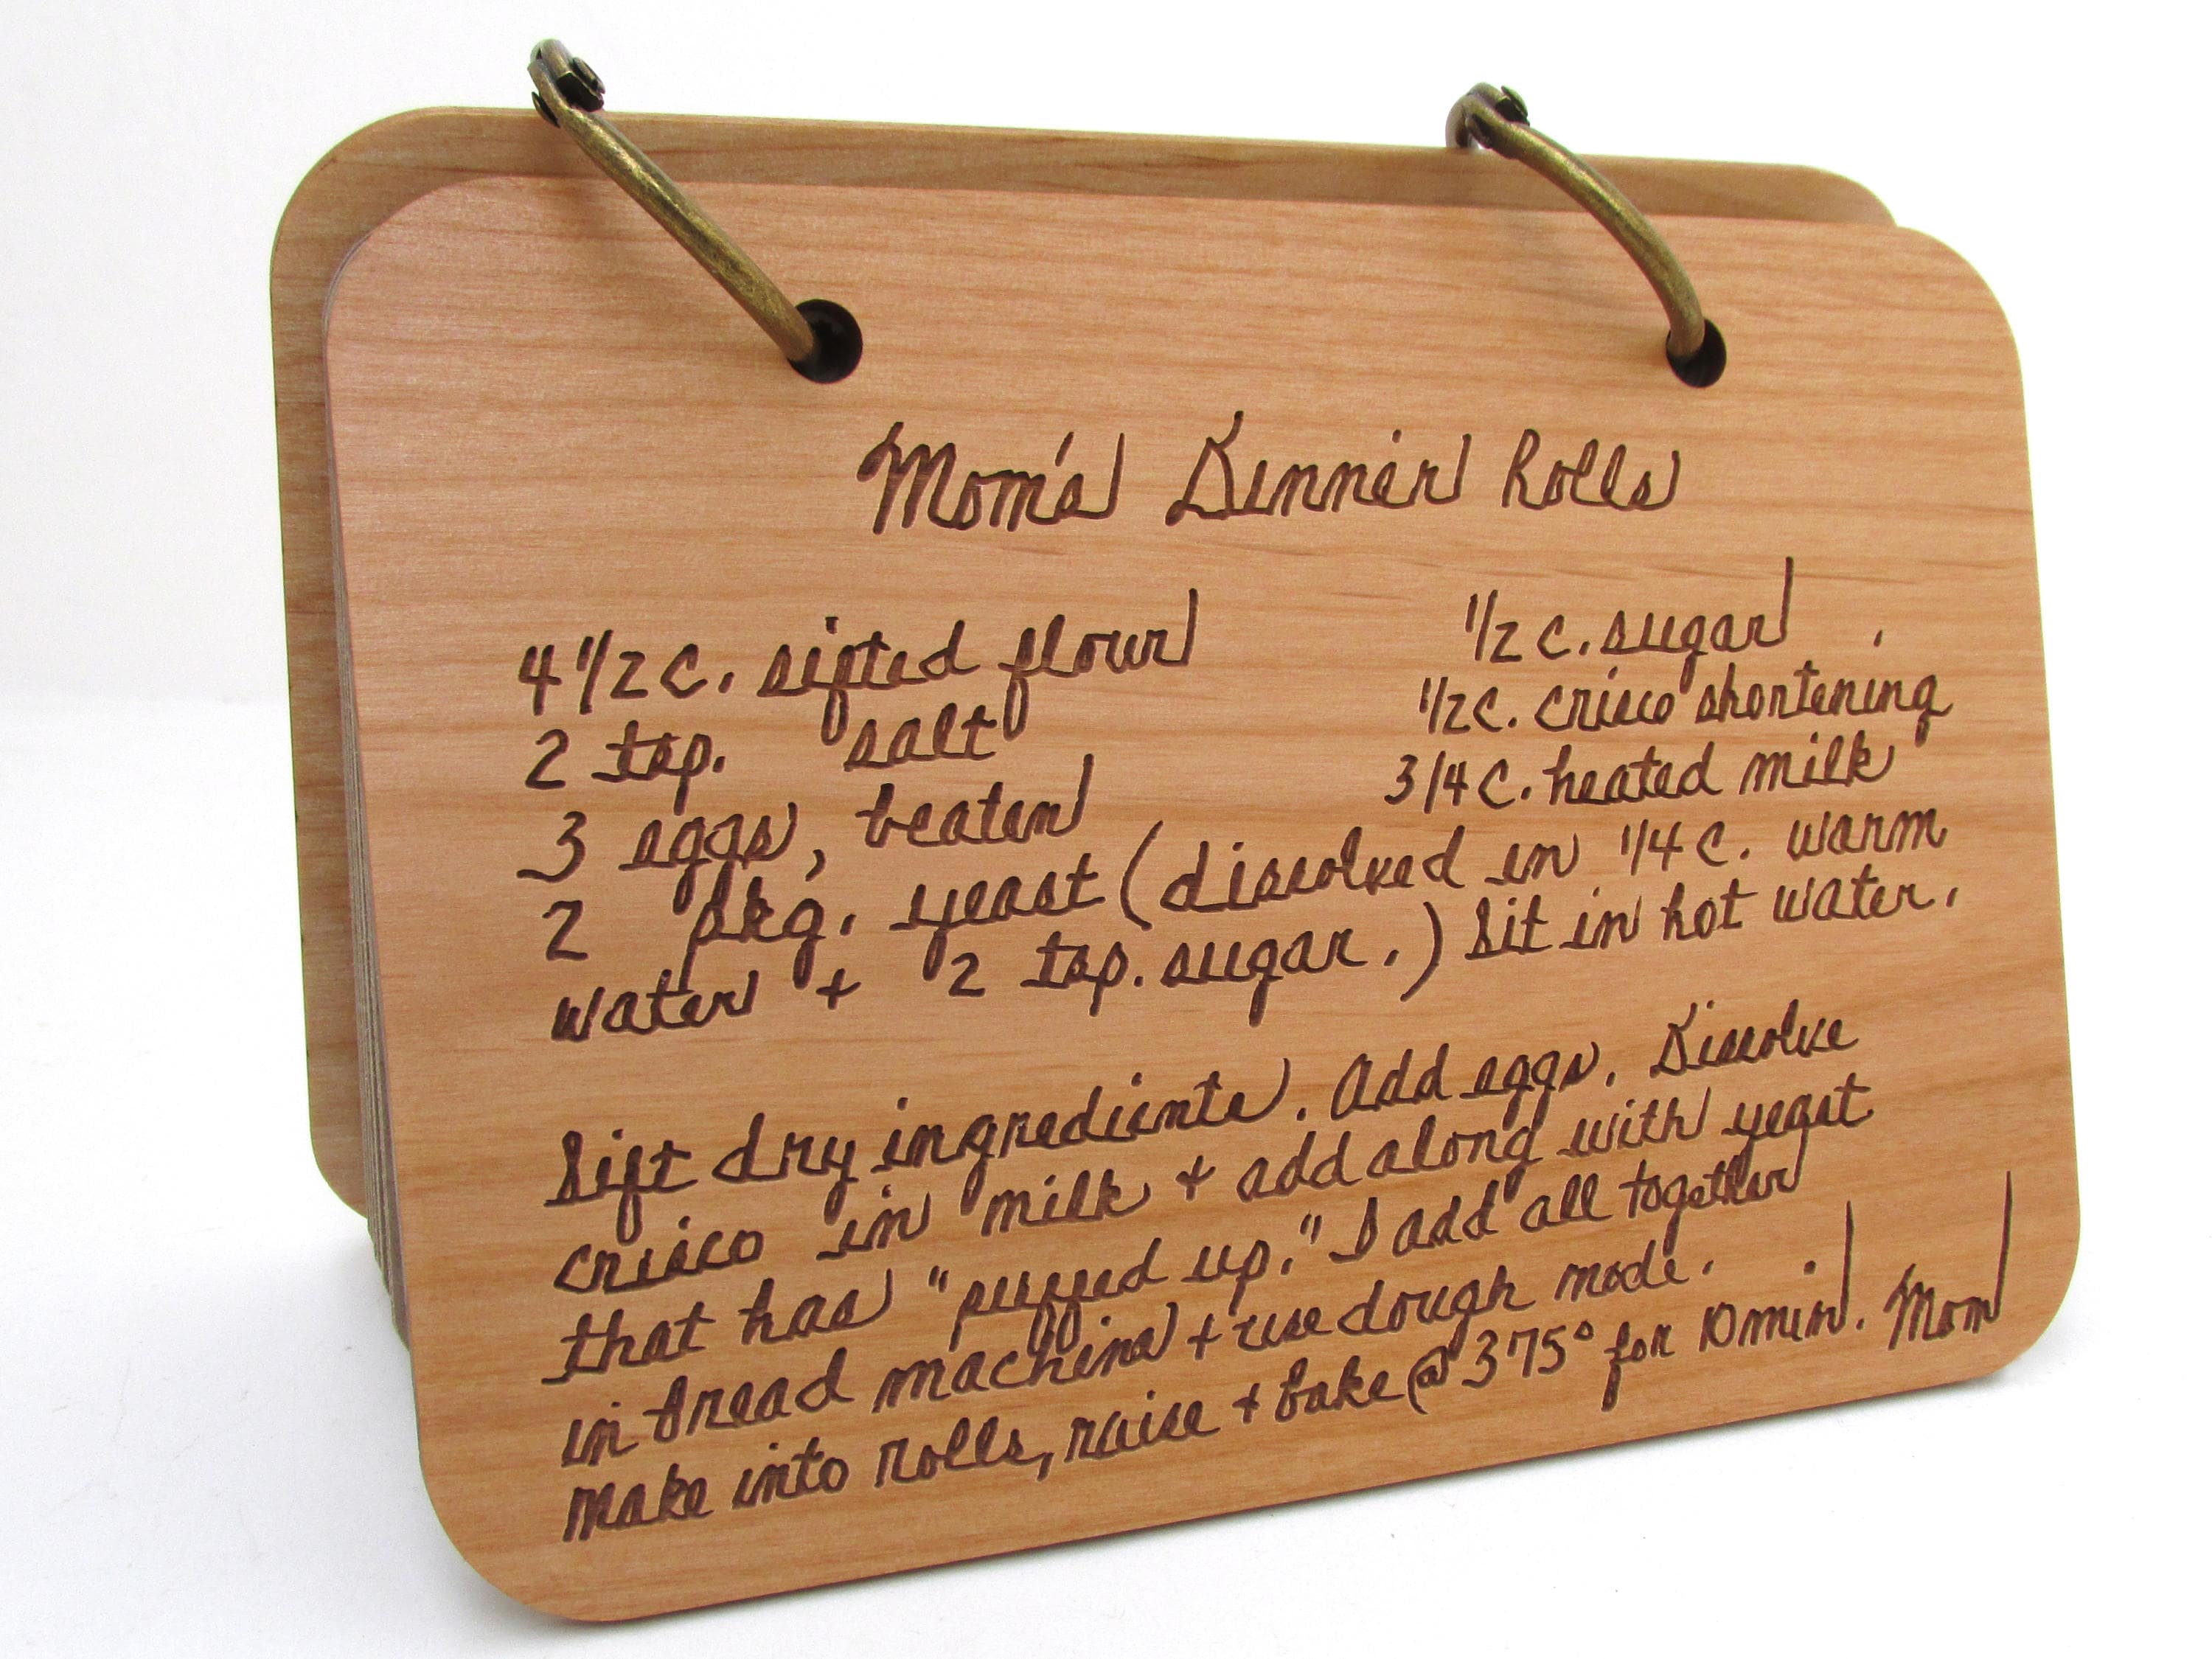 Mom's Dinner Rolls
4 1/2 c. sifted flour 1/2 c. sugar
2 tsp. salt 1/2 c. crisco shortening
3 eggs, beaten 3/4 c. heated milk
2 pkg. yeast (dissolved in 1/4 c. warm
water + 2 tsp. sugar.) Sit in hot water.
Sift dry ingredients. Add eggs. Dissolve
crisco in milk + add along with yeast
that has "puffed up." I add all together
in bread machine + use dough mode.
Make into rolls, raise + bake @ 375° for 10 min. Mom